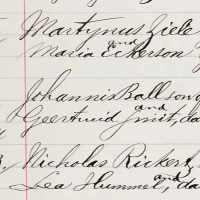 Martynus Ziele
and
Maria Eckerson
Johannis Ballson
and
Geertruid Smit, da
Nicholas Rickert,
and
Lea Hummel, da